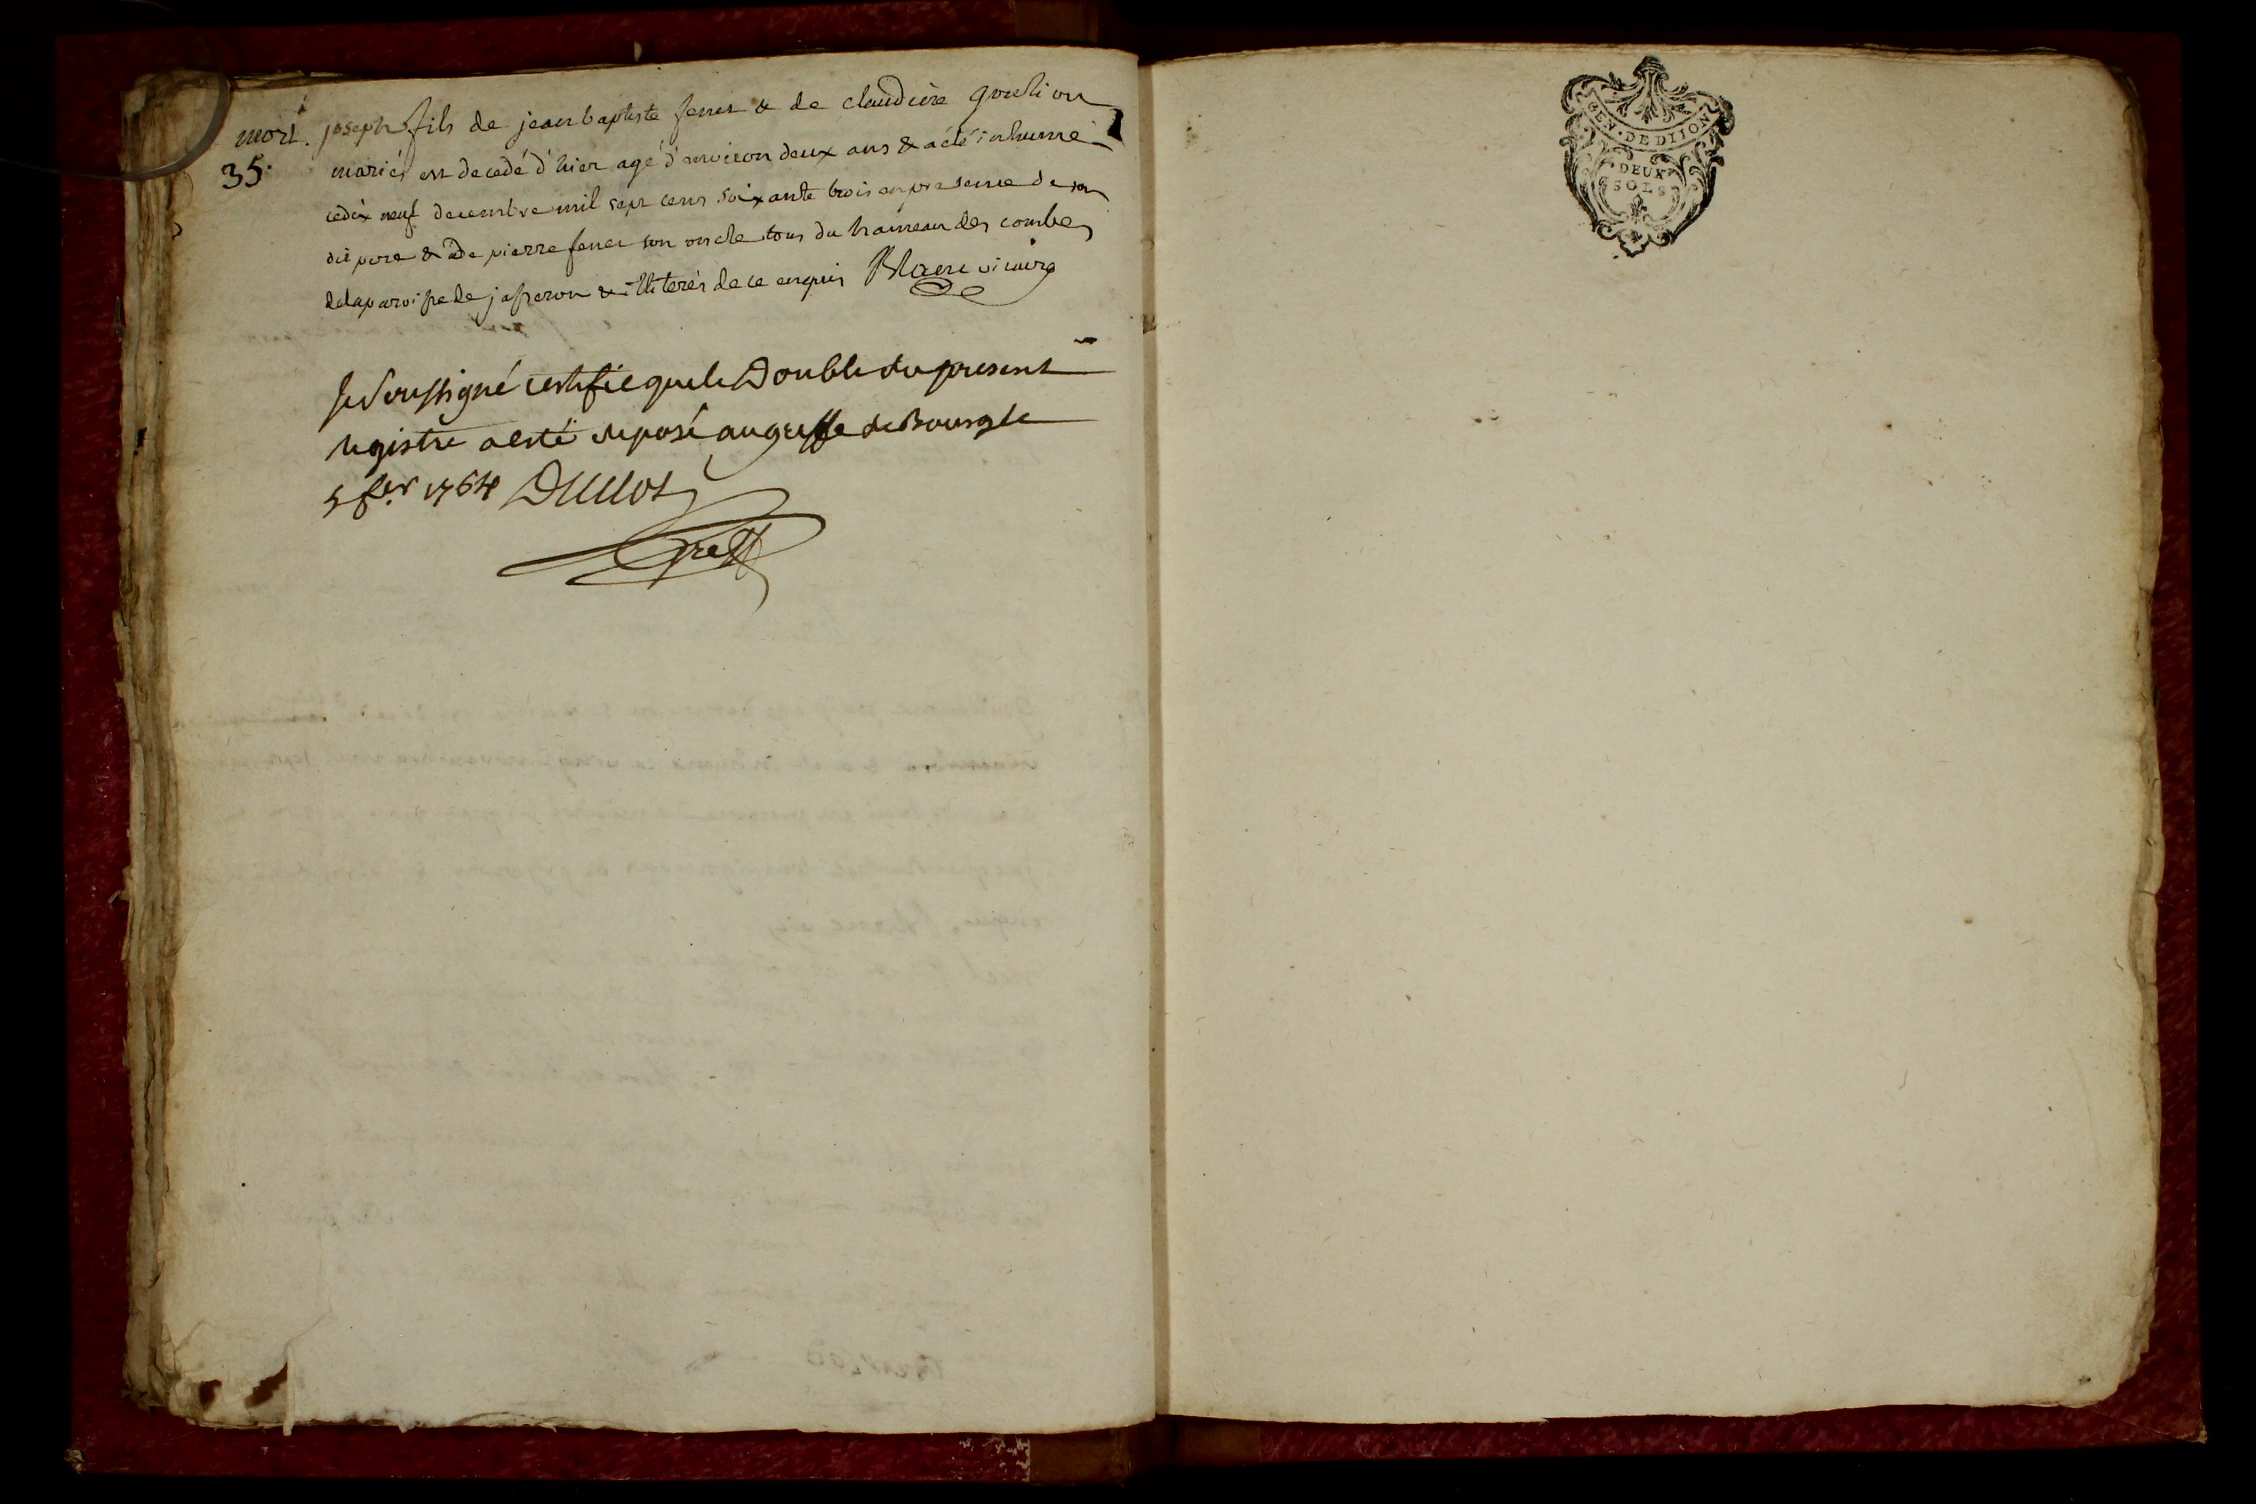 mort. joseph fils de jean baptiste ferret & de claudine goulion
35. mariés est decedé d'hier agé d'environ deux ans & a été inhumé
ce dix neuf decembre mil sept cens soixante trois en presence de son
dit pere & de pierre ferret son oncle tous du hameau des combes
de la paroisse de jasseron & illiterés de ce enquis Blanc vicaire
Je soussigné certifie que le Double du present
registre a esté deposé au greffe de Bourg le
5 fer 1764 Duclos
greff
GEN · DE DIION
DEUX
SOLS